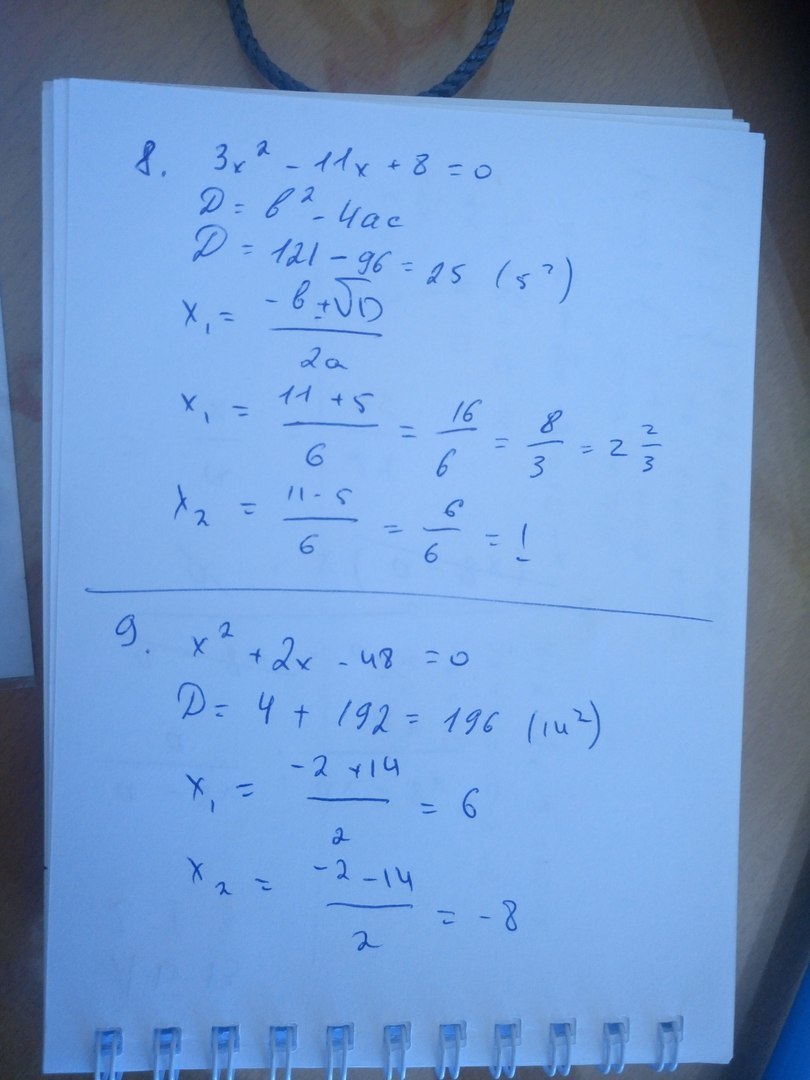 8. 3x² - 11x + 8 = 0
D = b² - 4ac
D = 121 - 96 = 25 (5²)
x₁ = (-b ± √D) / 2a
x₁ = (11 + 5) / 6 = 16/6 = 8/3 = 2 2/3
x₂ = (11 - 5) / 6 = 6/6 = 1
9. x² + 2x - 48 = 0
D = 4 + 192 = 196 (14²)
x₁ = (-2 + 14) / 2 = 6
x₂ = (-2 - 14) / 2 = -8